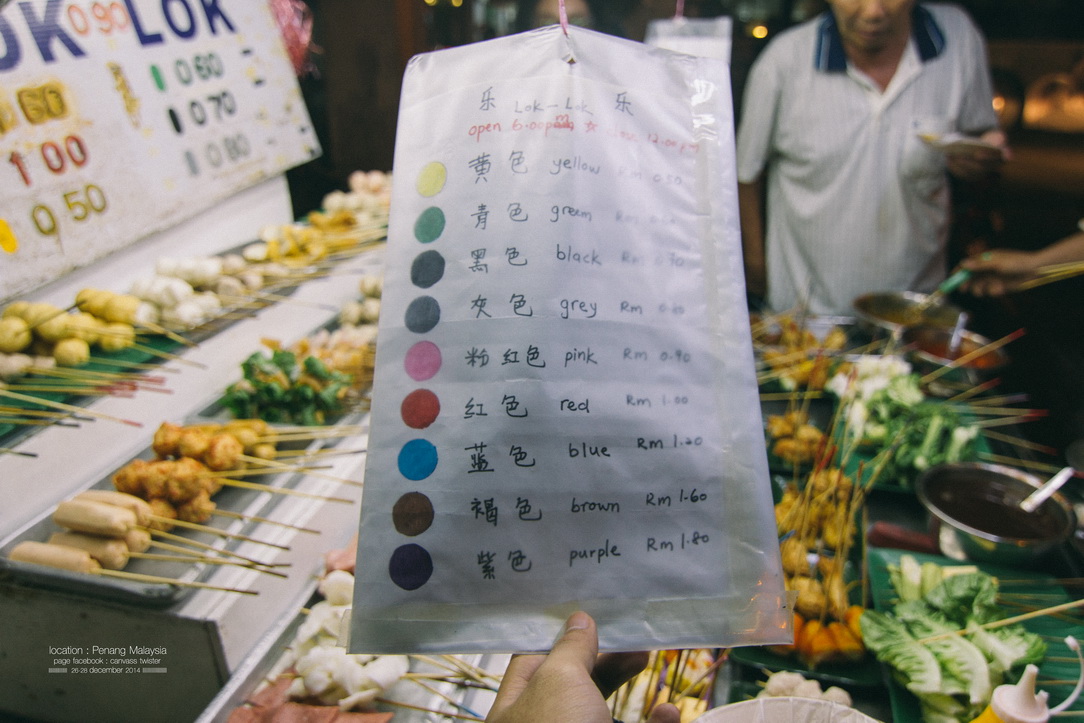 OK LOK
0.90
0 60
0 70
0 80
1 00
0 50
乐 Lok-Lok 乐
open 6.00pm close 12.00pm
黄色 yellow Rm 0.50
青色 green Rm
黑色 black Rm 0.70
灰色 grey Rm 0.80
粉红色 pink Rm 0.90
红色 red Rm 1.00
蓝色 blue Rm 1.20
褐色 brown Rm 1.60
紫色 purple Rm 1.80
location : Penang Malaysia
page facebook : canvass twister
26-28 december 2014